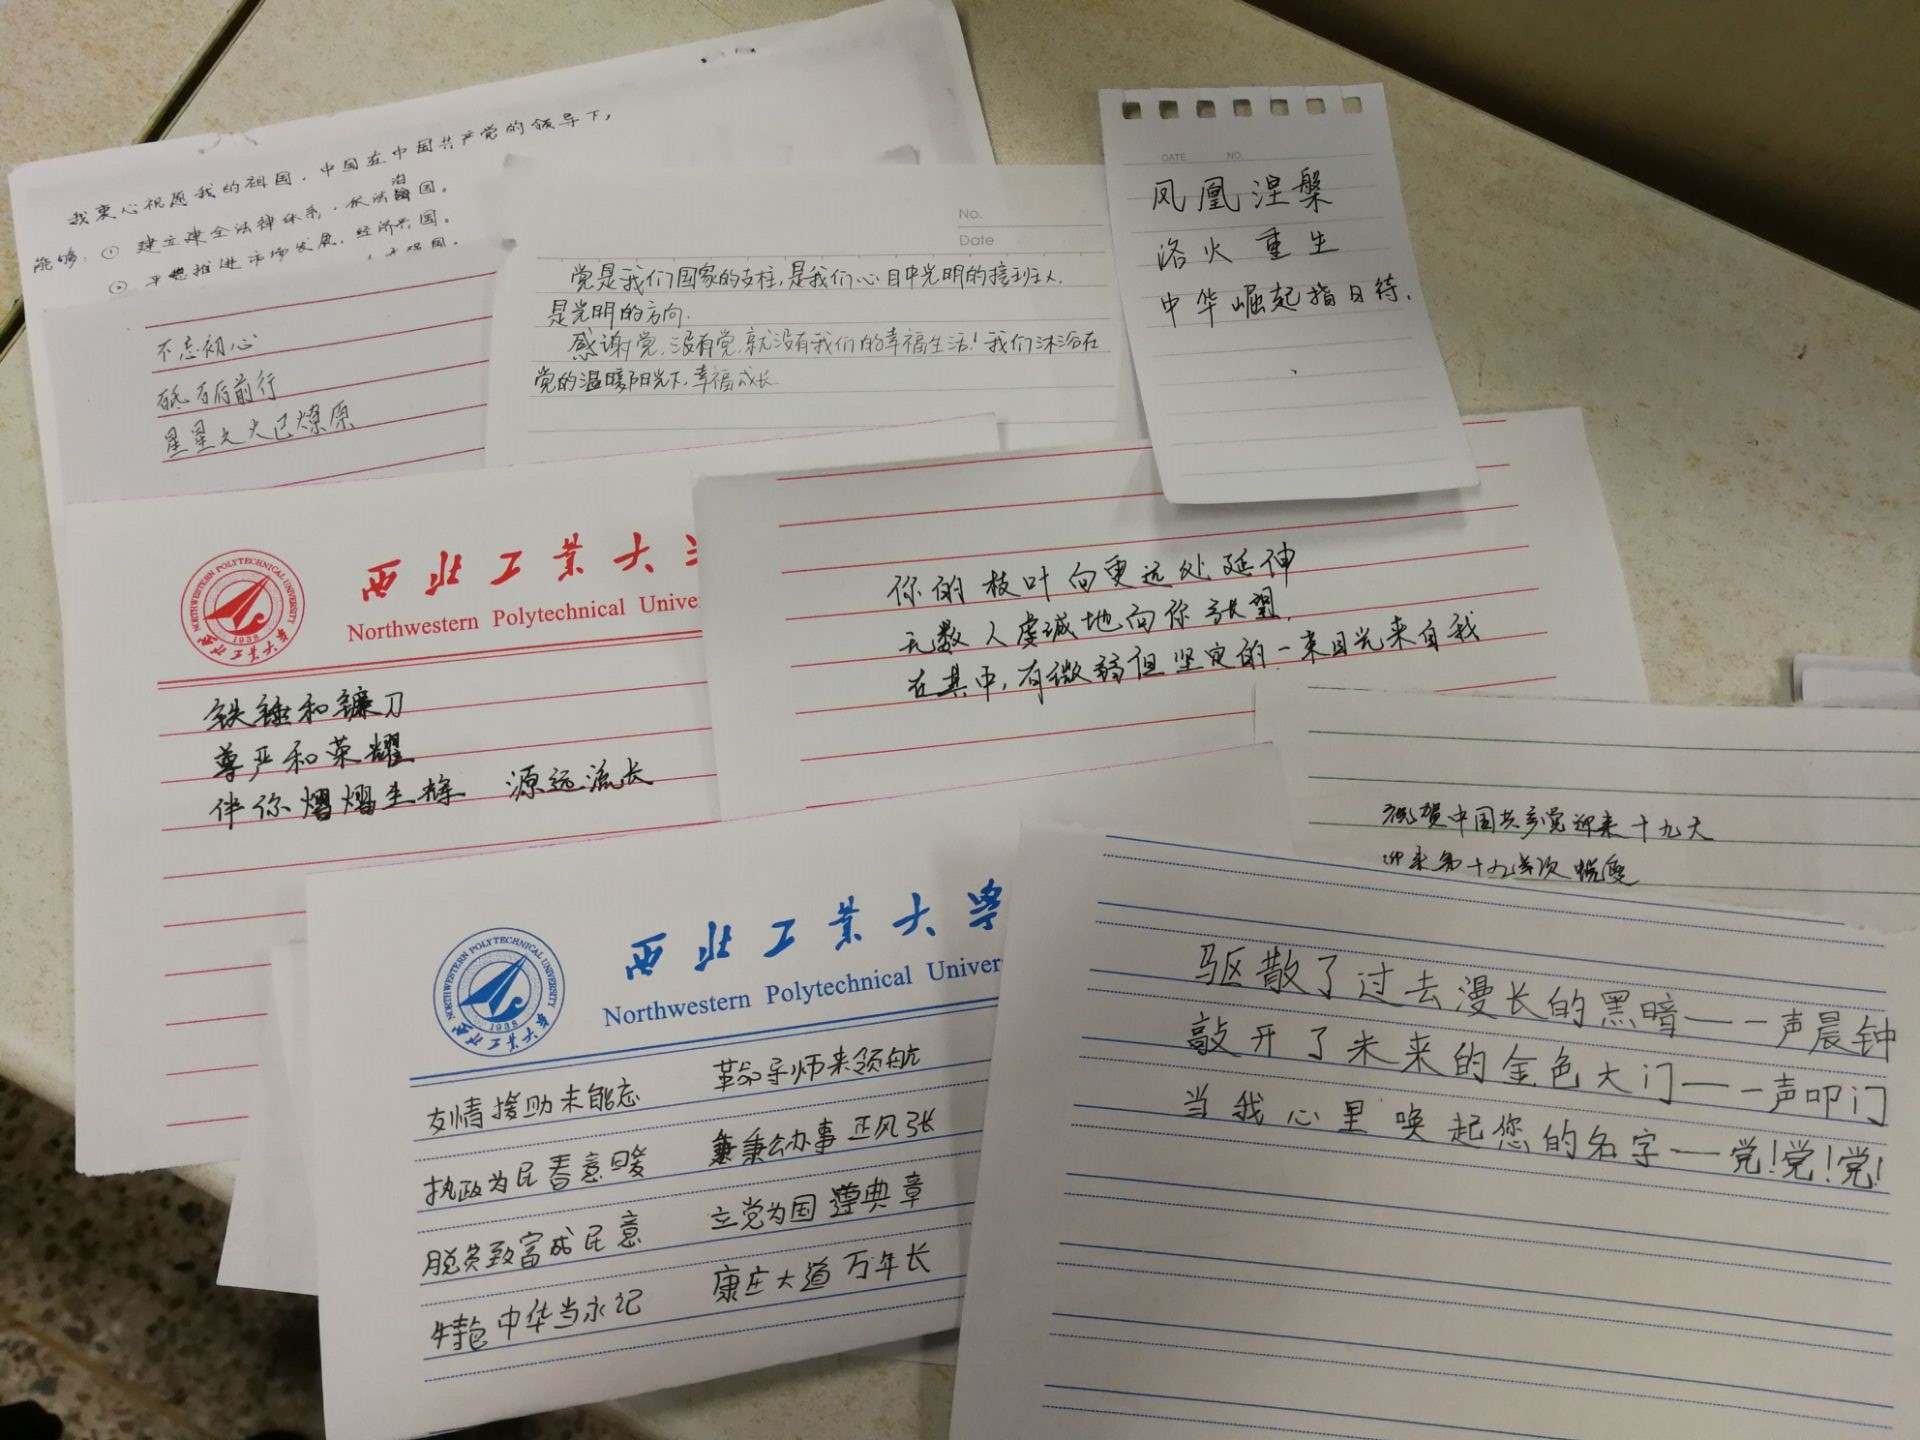 我衷心祝愿我的祖国，中国在中国共产党的领导下，
能够：① 建立建全法律体系，依法治国。
② 平稳推进市场发展，经济兴国。
No.
Date
党是我们国家的支柱，是我们心目中光明的接班人，
是光明的方向.
感谢党，没有党，就没有我们的幸福生活！我们沐浴在
党的温暖阳光下，幸福成长
DATE NO.
凤凰涅槃
洛火重生
中华崛起指日待.
不忘初心
砥砺前行
星星之火已燎原
NORTHWESTERN POLYTECHNICAL UNIVERSITY
1938
西北工业大学
西北工业大
Northwestern Polytechnical Unive
铁锤和镰刀
尊严和荣耀
伴你熠熠生辉 源远流长
你的枝叶向更远处延伸
无数人虔诚地向你张望，
在其中，有微弱但坚定的一束目光来自我
祝贺中国共产党迎来十九大
迎来第十九次
NORTHWESTERN POLYTECHNICAL UNIVERSITY
1938
西北工业大学
西北工业大学
Northwestern Polytechnical Univer
友情援助未能忘 革命导师来领航
执政为民春意暖 秉公办事正风张
脱贫致富成民意 立党为国遵典章
特色中华当永记 康庄大道万年长
驱散了过去漫长的黑暗——一声晨钟
敲开了未来的金色大门——一声叩门
当我心里唤起您的名字——党！党！党！